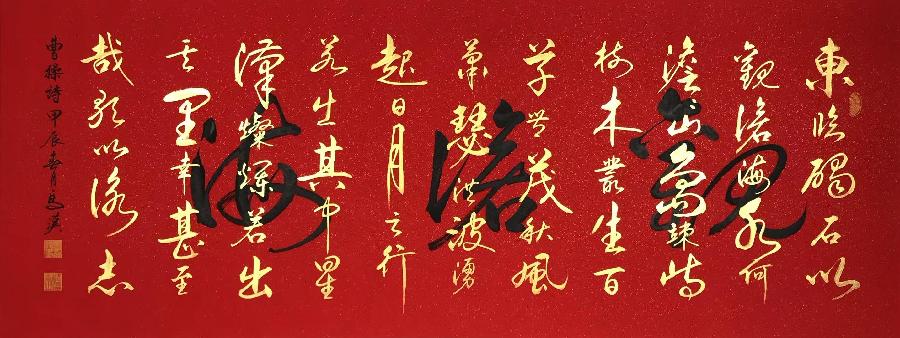 觀滄海
東臨碣石以
觀滄海水何
澹澹山島竦峙
樹木叢生百
草豐茂秋風
蕭瑟洪波湧
起日月之行
若出其中星
漢燦爛若出
其里幸甚至
哉歌以詠志
曹操詩甲辰春月